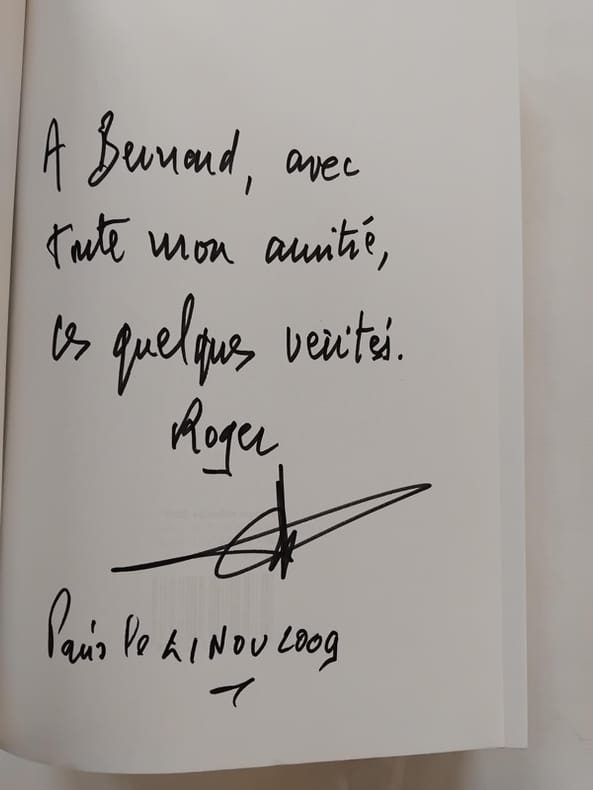 A Bernard, avec
toute mon amitié,
ces quelques vérités.
Roger
Paris le 21 NOV 2009